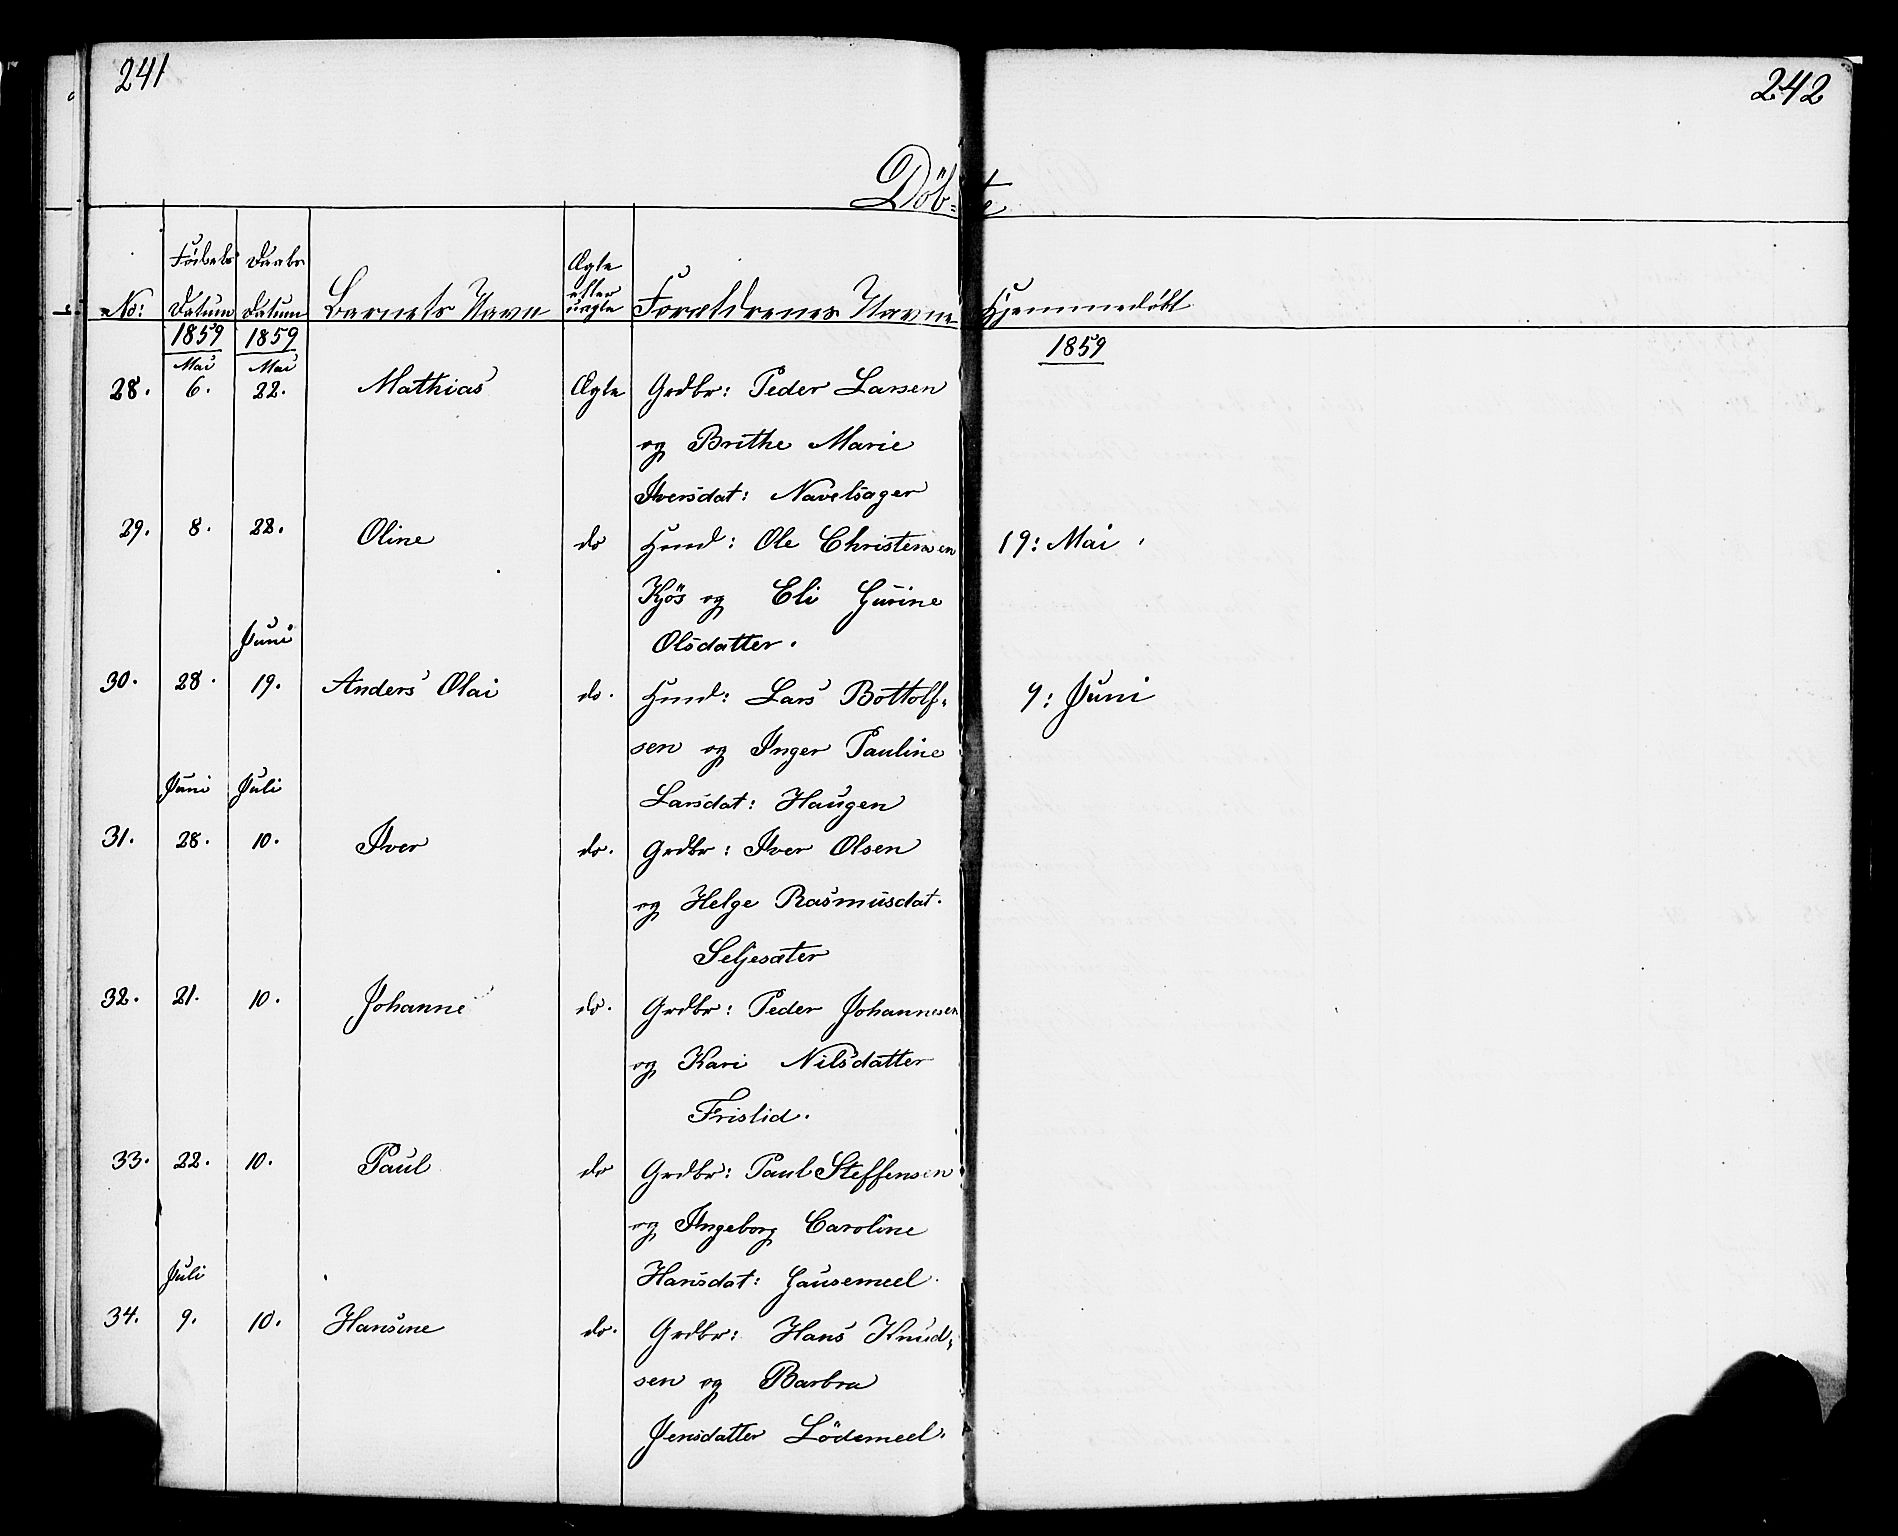 241
242
Döb=te
No: Fødsels Datum Daabs Datum Barnets Navn Ægte eller uægte Forældrenes Navne Hjemmedøbt
1859 1859 1859
Mai Mai
28. 6. 22. Mathias Ægte Grdbr: Peder Larsen
og Brithe Marie
Iversdat: Navelsager
29. 8. 22. Oline do Huusd: Ole Christensen 19: Mai
Kjös og Eli Gurine
Juni Olsdatter.
30. 28. 19. Anders Olai do. Huusd: Lars Bottolf= 9: Juni
sen og Inger Pauline
Juni Juli Larsdat: Haugen
31. 28. 10. Iver do. Grdbr: Iver Olsen
og Helge Rasmusdat.
Seljesæter
32. 21. 10. Johanne do. Grdbr: Peder Johannesen
og Kari Nilsdatter
Frislid.
33. 22. 10. Paul do Grdbr: Paul Steffensen
og Ingeborg Caroline
Juli Hansdat: Gausemeel.
34. 9. 10. Hansine do. Grdbr: Hans Knud=
sen og Barbra
Jensdatter Lödemeel.